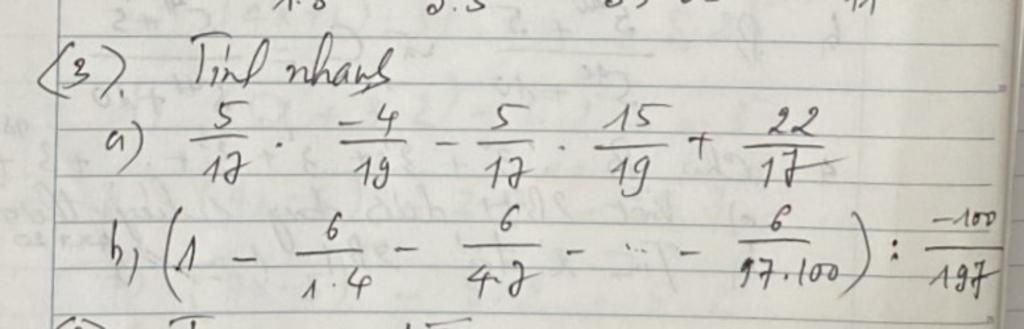 (3). Tính nhanh
a) 5/17 . -4/19 - 5/17 . 15/19 + 22/17
b, (1 - 6/1.4 - 6/4.7 - ... - 6/97.100) : -100/197